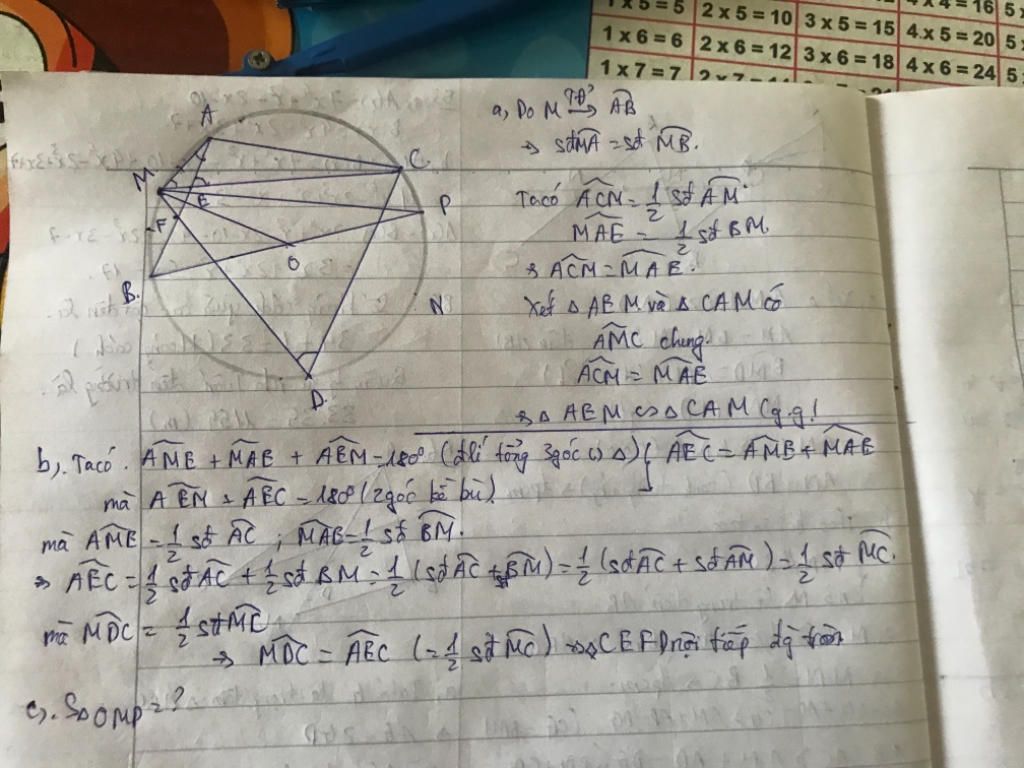 1 x 5 = 5 2 x 5 = 10 3 x 5 = 15 4 x 5 = 20
1 x 6 = 6 2 x 6 = 12 3 x 6 = 18 4 x 6 = 24
1 x 7 = 7
A
M
C
E
P
F
O
B.
N
D.
a, Do M AB
⇒ sđMA = sđ MB.
Ta có ACM = 1/2 sđ AM
MAE = 1/2 sđ BM.
⇒ ACM = MAE.
Xét △ AEM và △ CAM có
AMC chung.
ACM = MAE
⇒ △ AEM ∽ △ CAM (g.g)
b). Ta có. AME + MAE + AEM = 180° (đlí tổng 3 góc △) AEC = AME + MAE
mà AEM + AEC = 180° (2 góc kề bù)
mà AME = 1/2 sđ AC ; MAB = 1/2 sđ BM.
⇒ AEC = 1/2 sđ AC + 1/2 sđ BM = 1/2 (sđ AC + BM) = 1/2 (sđ AC + sđ AM) = 1/2 sđ MC.
mà MDC = 1/2 sđ MC
⇒ MDC = AEC (= 1/2 sđ MC) ⇒ CEFD nội tiếp
c). S△OMP = ?